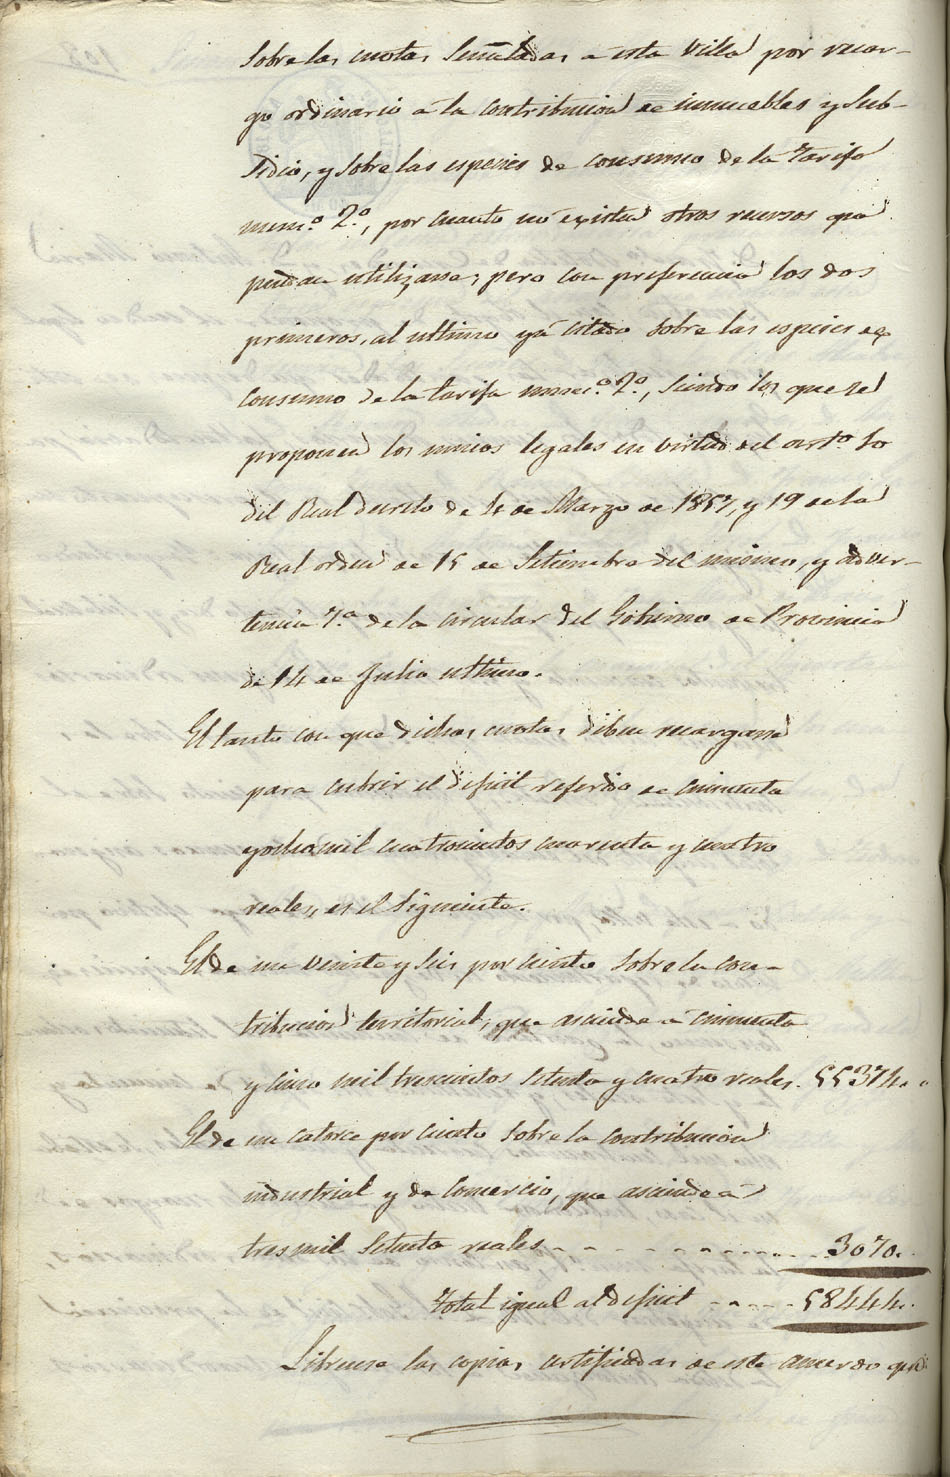 sobre las cuotas señaladas a esta Villa por recar-
go ordinario á la contribucion de inmuebles y sub-
sidio, y sobre las especies de consumo de la tarifa
num.º 2.º, por cuanto no existen otros recursos que
puedan utilizarse; pero con preferencia los dos
primeros, al ultimo yá citado sobre las especies de
consumo de la tarifa num.º 2.º, siendo los que se
proponen los unicos legales en virtud del art.º
del Real decreto de 4 de Marzo de 1857, y 19 de la
Real orden de 15 de Setiembre del mismo, y adver-
tencia 7.ª de la circular del Gobierno de Provincia
de 14 de Julio ultimo.
El tanto con que dichas cuotas deben recargarse
para cubrir el deficit referido de cincuenta
y ocho mil cuatrocientos cuarenta y cuatro
reales, es el siguiente.
El de un veinte y seis por ciento sobre la con-
tribucion territorial, que asciende á cincuenta
y cinco mil trescientos setenta y cuatro reales. 55374.
El de un catorce por ciento sobre la contribucion
industrial y de comercio, que asciende á
tres mil setenta reales - - - - - - - - - - 3070.
Total igual al deficit - - - - - 58444.
Librense las copias certificadas de este acuerdo que